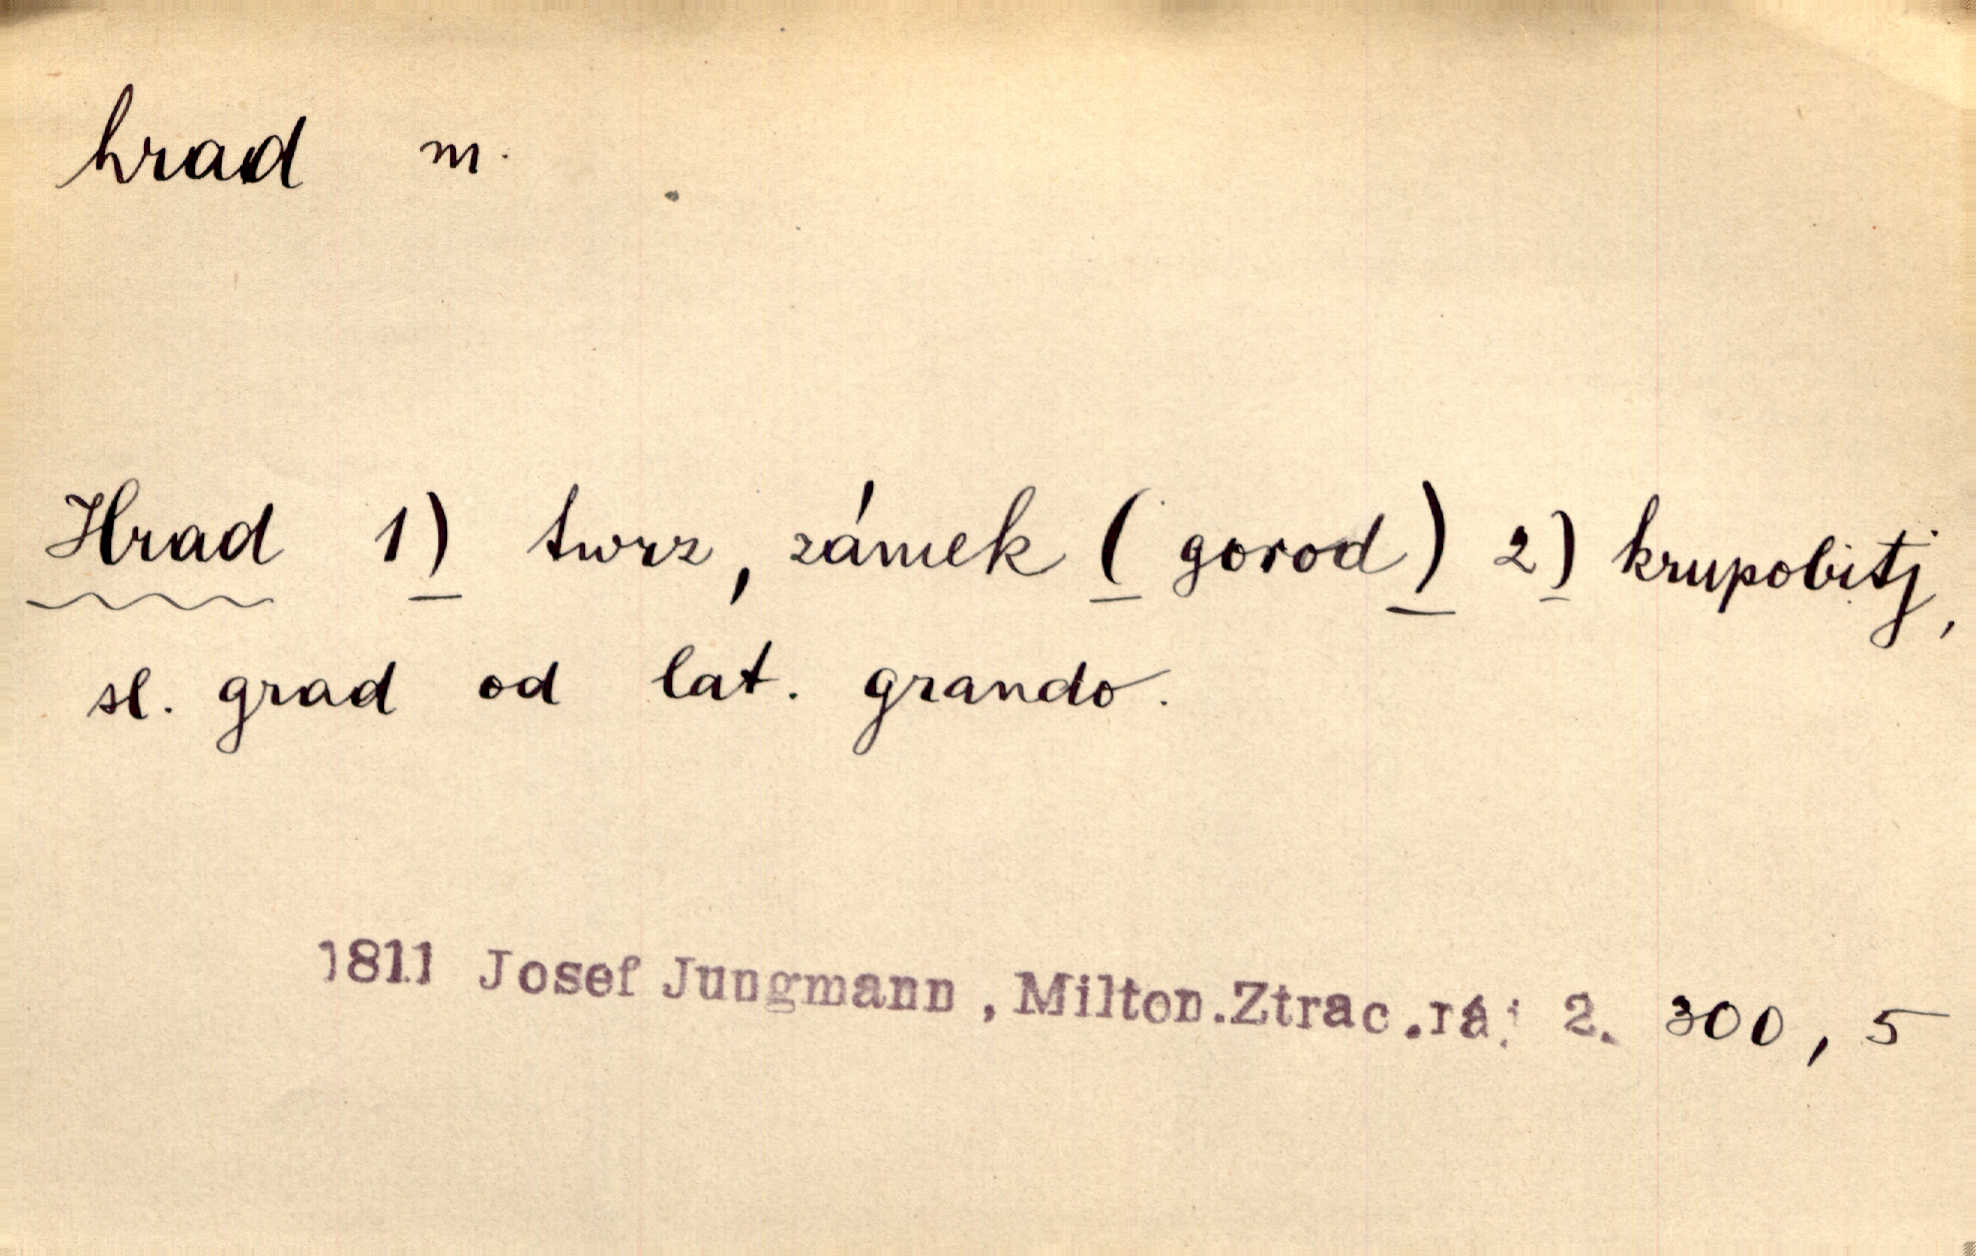 hrad m.
Hrad 1) twrz, zámek (gorod) 2) krupobitj,
sl. grad od lat. grando.
1811 Josef Jungmann, Milton.Ztrac.ráj 2. 300, 5